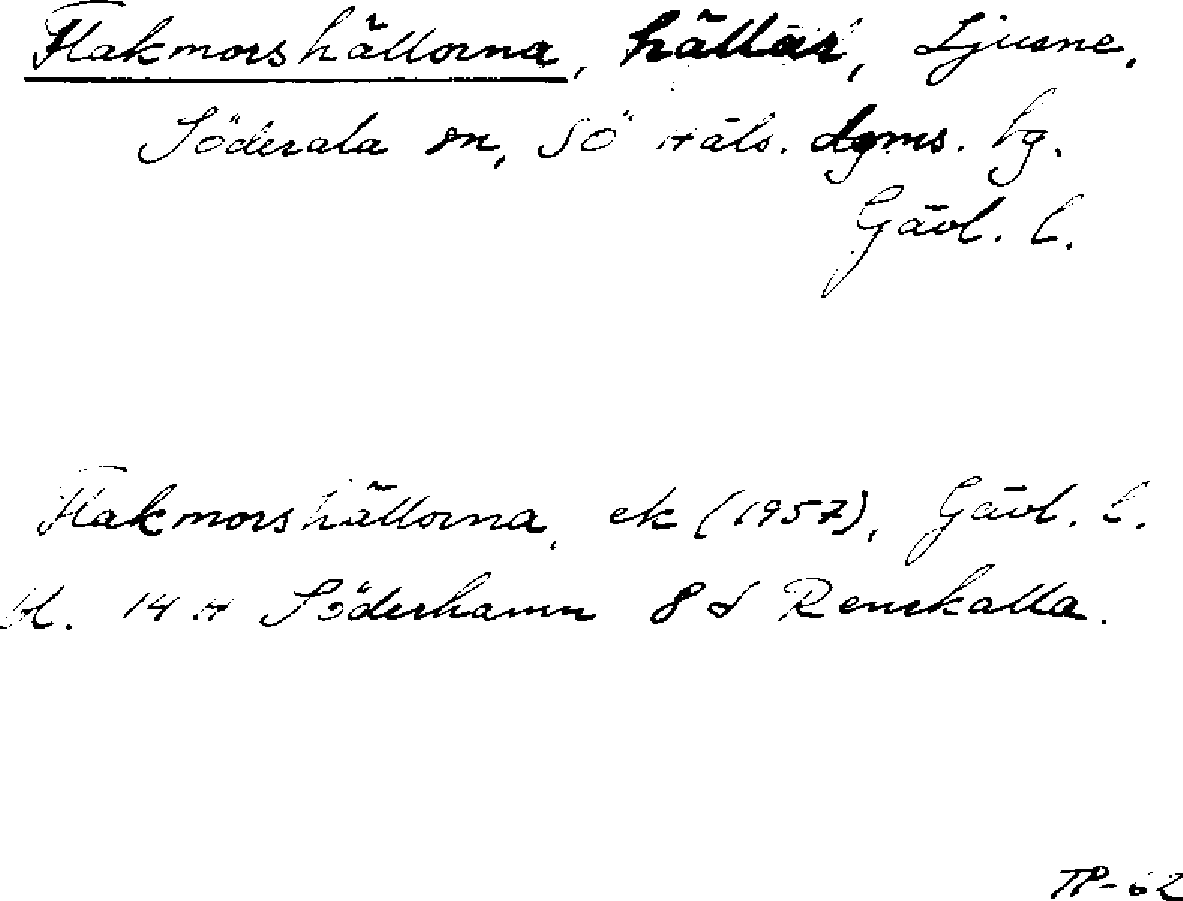 Flakmorshällorna, hällar, Ljusne,
Söderala sn, SÖ Häls. dgms. hg.
Gävl. l.
Flakmorshällorna, ek (1957), Gävl. l.
bl. 14 H Söderhamn 8 d Renskalla.
TP-62